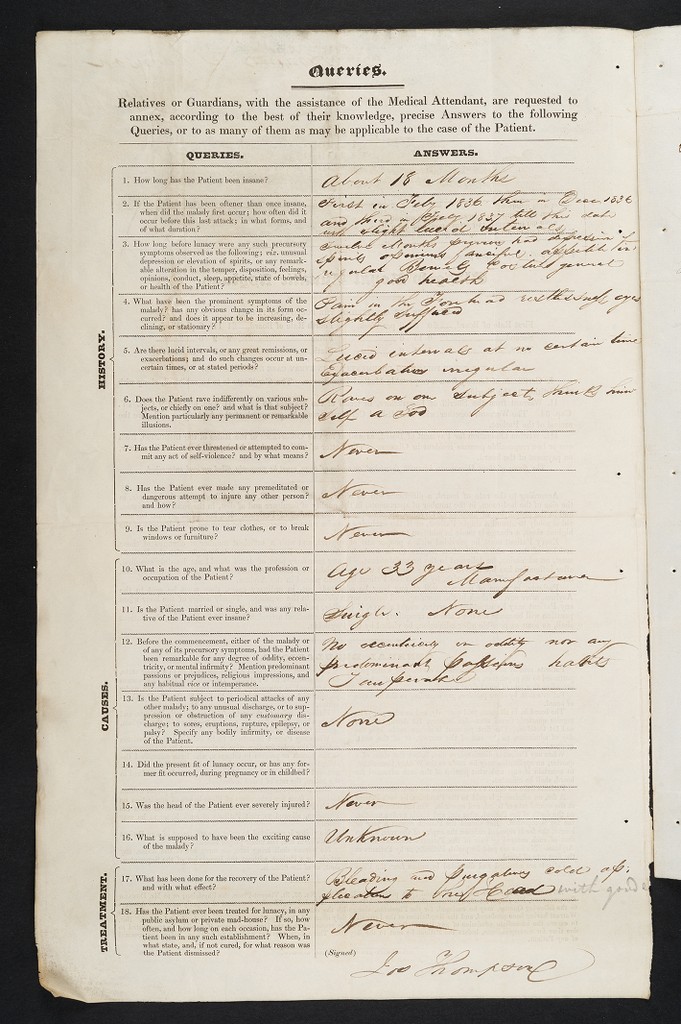 Queries.
Relatives or Guardians, with the assistance of the Medical Attendant, are requested to
annex, according to the best of their knowledge, precise Answers to the following
Queries, or to as many of them as may be applicable to the case of the Patient.
QUERIES.
ANSWERS.
HISTORY.
1. How long has the Patient been insane?
About 18 Months
2. If the Patient has been oftener than once insane,
when did the malady first occur; how often did it
occur before this last attack; in what forms, and
of what duration?
First in July 1836 then in Decr 1836
and third in July 1837 till this date
with slight lucid Intervals
3. How long before lunacy were any such precursory
symptoms observed as the following; viz. unusual
depression or elevation of spirits, or any remark-
able alteration in the temper, disposition, feelings,
opinions, conduct, sleep, appetite, state of bowels,
or health of the Patient?
Twelve Months previous had depression of
spirits opinions fanciful. appetite ir-
regular Bowels Costive general
good health
4. What have been the prominent symptoms of the
malady? has any obvious change in its form oc-
curred? and does it appear to be increasing, de-
clining, or stationary?
Pain in the Forehead restlessness eyes
slightly suffused
5. Are there lucid intervals, or any great remissions, or
exacerbations; and do such changes occur at un-
certain times, or at stated periods?
Lucid intervals at no certain time
Exacerbations irregular
6. Does the Patient rave indifferently on various sub-
jects, or chiefly on one? and what is that subject?
Mention particularly any permanent or remarkable
illusions.
Raves on one subject, thinks him
self a God
7. Has the Patient ever threatened or attempted to com-
mit any act of self-violence? and by what means?
Never
8. Has the Patient ever made any premeditated or
dangerous attempt to injure any other person?
and how?
Never
9. Is the Patient prone to tear clothes, or to break
windows or furniture?
Never
CAUSES.
10. What is the age, and what was the profession or
occupation of the Patient?
Age 33 years
Manufacturer
11. Is the Patient married or single, and was any rela-
tive of the Patient ever insane?
Single. None
12. Before the commencement, either of the malady or
of any of its precursory symptoms, had the Patient
been remarkable for any degree of oddity, eccen-
tricity, or mental infirmity? Mention predominant
passions or prejudices, religious impressions, and
any habitual vice or intemperance.
No eccentricity or oddity nor any
predominant passions habits
Temperate
13. Is the Patient subject to periodical attacks of any
other malady; to any unusual discharge, or to sup-
pression or obstruction of any customary dis-
charge; to sores, eruptions, rupture, epilepsy, or
palsy? Specify any bodily infirmity, or disease
of the Patient.
None
14. Did the present fit of lunacy occur, or has any for-
mer fit occurred, during pregnancy or in childbed?
15. Was the head of the Patient ever severely injured?
Never
16. What is supposed to have been the exciting cause
of the malady?
Unknown
TREATMENT.
17. What has been done for the recovery of the Patient?
and with what effect?
Bleeding and Purgatives cold ap:
plications to the Head with good
18. Has the Patient ever been treated for lunacy, in any
public asylum or private mad-house? If so, how
often, and how long on each occasion, has the Pa-
tient been in any such establishment? When, in
what state, and, if not cured, for what reason was
the Patient dismissed?
Never
(Signed)
Jos Thompson